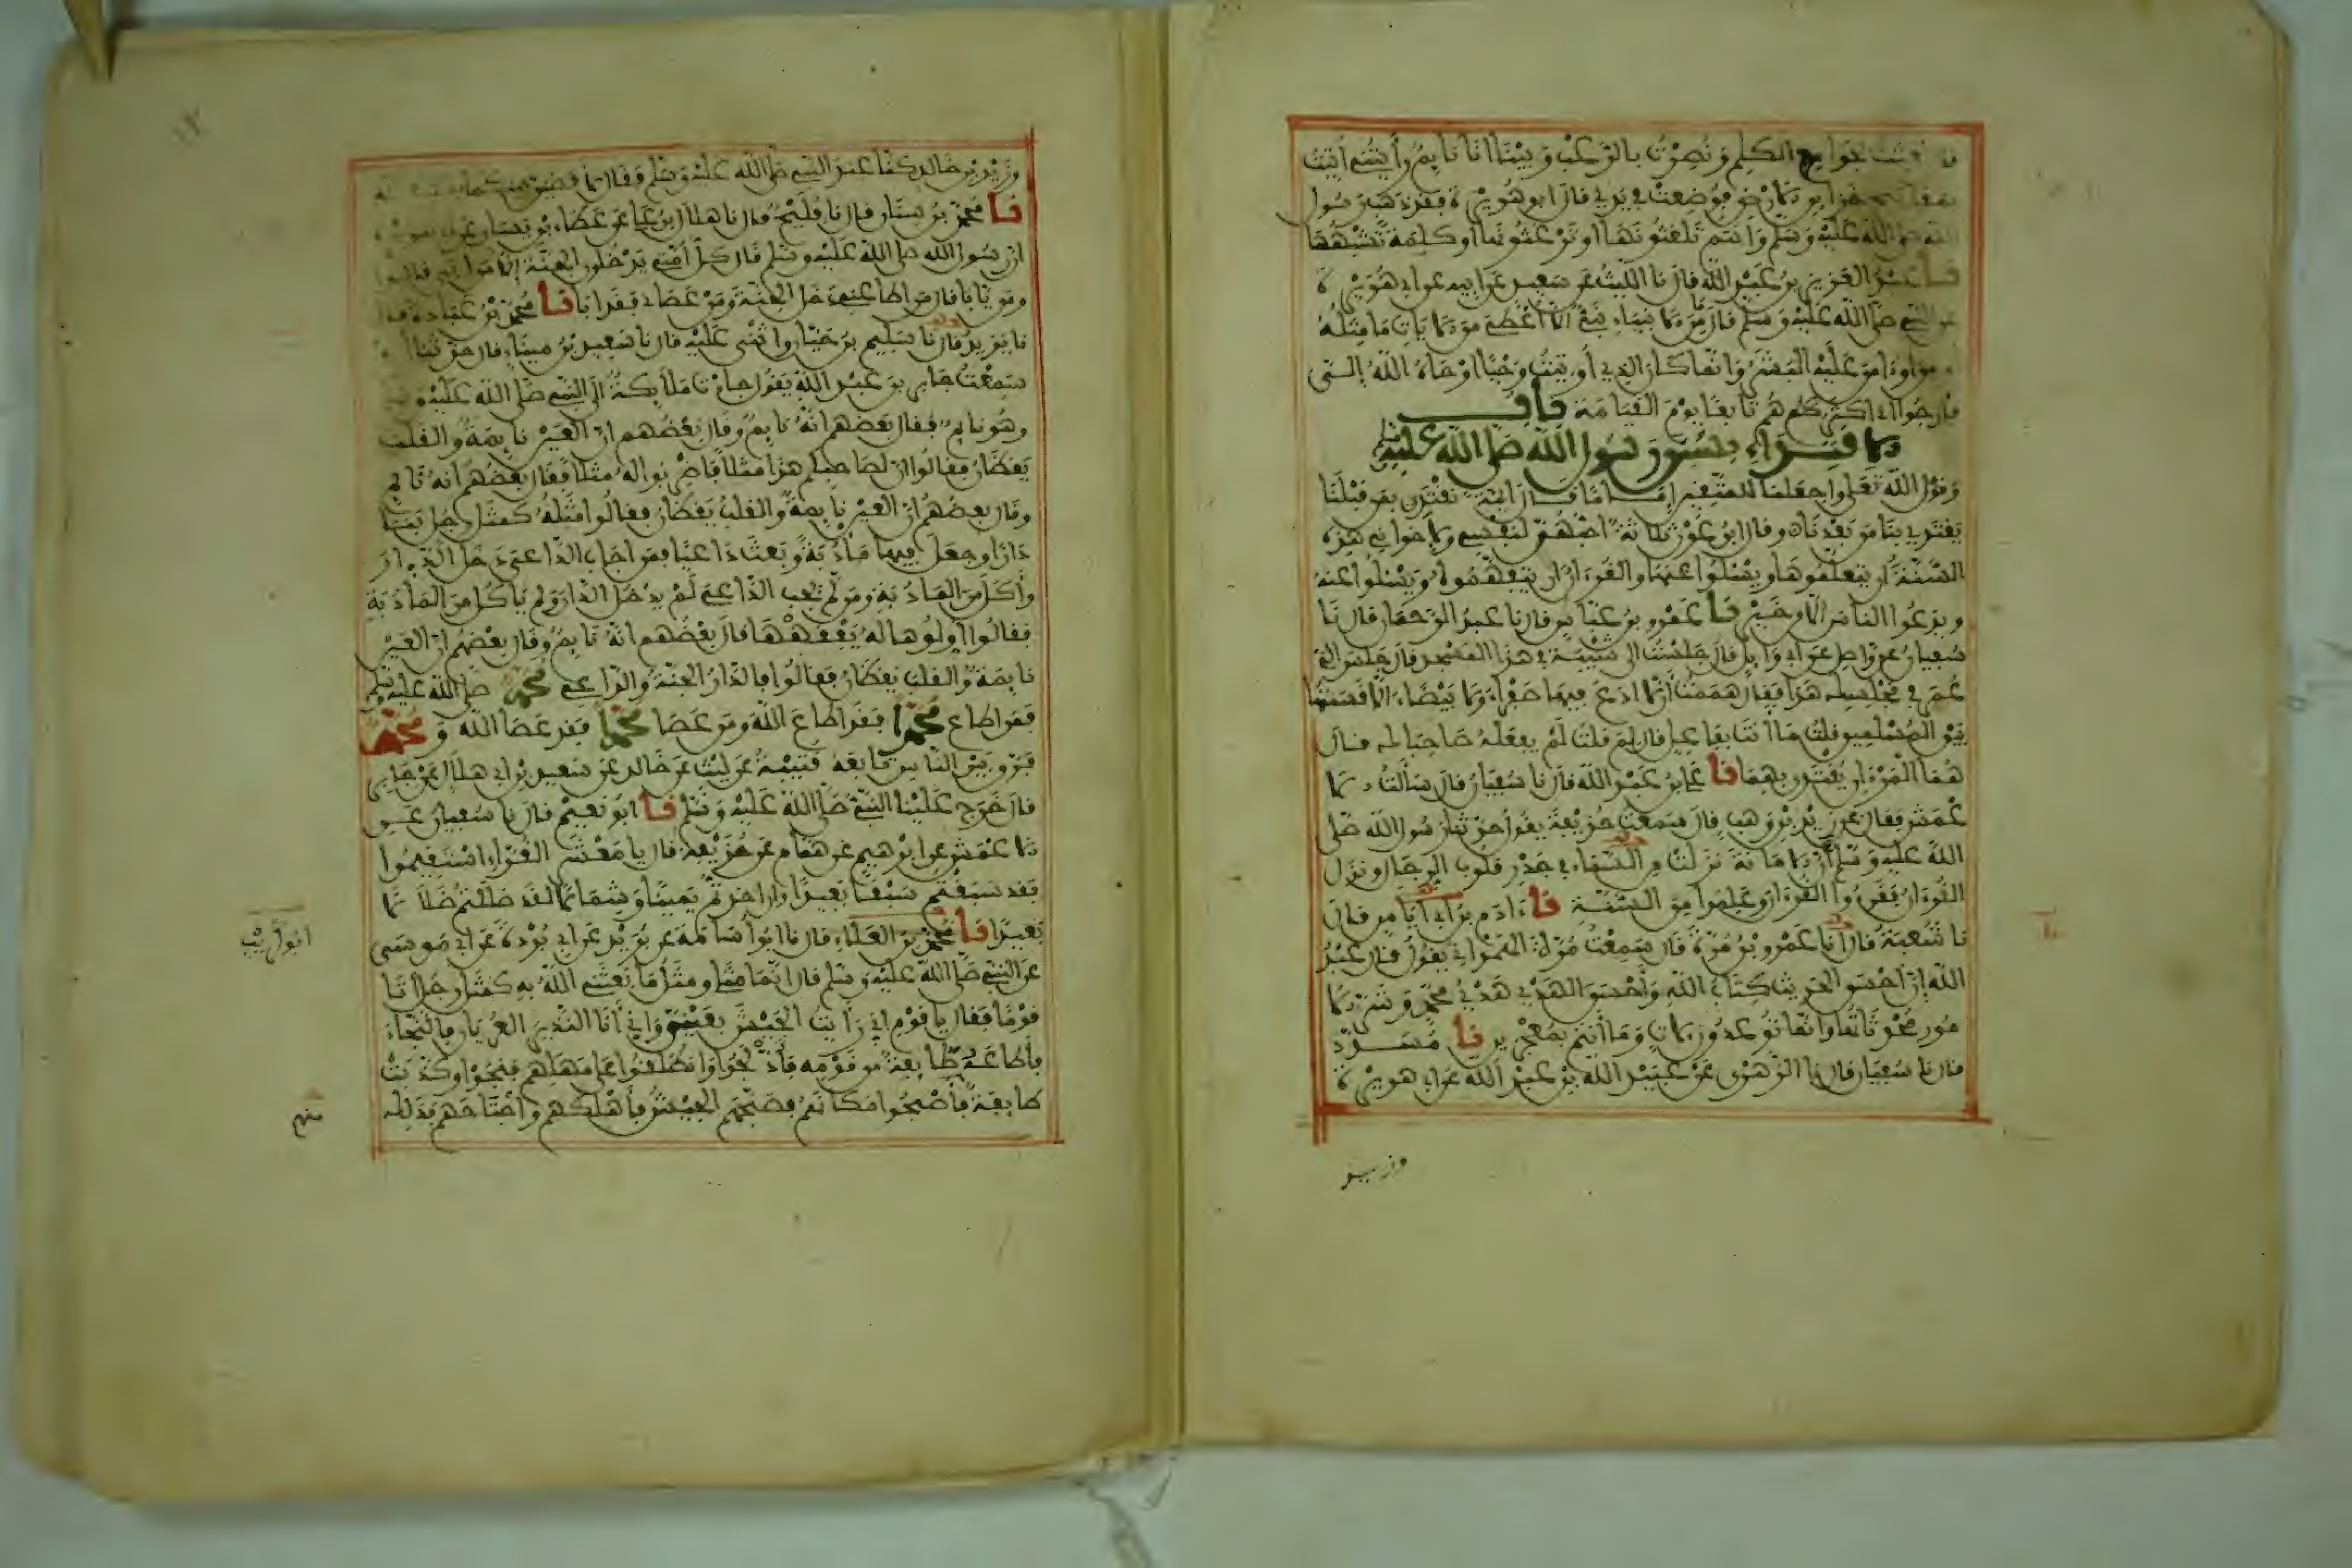 بعثت بجوامع الكلم ونصرت بالرعب وبينا انا نايم رأيتني اتيت
بمفاتيح خزاين الارض فوضعت في يدي قال ابو هريرة فقد ذهب رسول
الله صلى الله عليه وسلم وانتم تلغثونها او ترغثونها او كلمة تشبهها
نا عبد العزيز بن عبد الله قال نا الليث عن سعيد عن ابيه عن ابي هريرة
عن النبي صلى الله عليه وسلم قال ما من الانبياء نبي الا اعطي من الايات ما مثله
اومن او امن عليه البشر وانما كان الذي أوتيت وحيا اوحاه الله إلي
فارجوا اني اكثركم تابعا يوم القيامة باب
الاقتداء بسنن رسول الله صلى الله عليه وسلم
وقول الله تعلى واجعلنا للمتقين إماما قال ايمة نقتدي بمن قبلنا
يقتدي بنا من بعدنا وقال ابن عون ثلاثة احبهن لنفسي ولاخواني هذه
السنة ان يتعلموها ويسئلوا عنها والقرءان ان يتفهموه ويسئلوا عنه
ويدعوا الناس الا من خير نا عمرو بن عباس قال نا عبد الرحمان قال نا
سفيان عن واصل عن ابي وايل قال جلست الى شيبة في هذا المسجد قال جلس الي
عمر في مجلسك هذا فقال هممت أن لا ادع فيها صفراء ولا بيضاء الا قسمتها
بين المسلمين قلت ما انت بفاعل قال لم قلت لم يفعله صاحباك قال
هما المرءان يقتدى بهما نا علي بن عبد الله قال نا سفيان قال سألت الا
عمش فقال عن زيد بن وهب قال سمعت حذيفة يقول حدثنا رسول الله صلى
الله عليه وسلم أن الامانة نزلت من السماء في جذر قلوب الرجال ونزل
القرءان فقرءوا القرءان وعلموا من السنة نا ءادم بن ابي اياس قال
نا شعبة قال انا عمرو بن مرة قال سمعت مرة الهمداني يقول قال عبد
الله إن احسن الحديث كتاب الله وأحسن الهدي هدي محمد وشر الا
مور محدثاتها وانما توعدون لات وما أنتم بمعجزين نا مسدد
قال نا سفيان قال نا الزهري عن عبيد الله بن عبد الله عن ابي هريرة
وزيد بن
وزيد بن خالد كنا عند النبي صلى الله عليه وسلم فقال لا قضين بينكما
نا محمد بن سنان قال نا فليح قال نا هلال بن علي عن عطاء بن يسار عن
ان رسول الله صلى الله عليه وسلم قال كل أمتي يدخلون الجنة إلا من ابى قالوا
ومن يابا قال من اطاعني دخل الجنة ومن عصاني فقد ابا نا محمد بن عبادة قال
نا يزيد قال نا سليم بن حيان واثنى عليه قال نا سعيد بن ميناء قال حدثنا او
سمعت جابر بن عبد الله يقول جاءت ملايكة الى النبي صلى الله عليه وسلم
وهو نايم فقال بعضهم انه نايم وقال بعضهم ان العين نايمة والقلب
يقظان فقالوا ان لصاحبكم هذا مثلا فاضربوا له مثلا فقال بعضهم انه نايم
وقال بعضهم ان العين نايمة والقلب يقظان فقالوا مثله كمثل رجل بنى
دارا وجعل فيها مأدبة وبعث داعيا فمن اجاب الداعي دخل الدار
وأكل من المادبة ومن لم يجب الداعي لم يدخل الدار ولم ياكل من المأدبة
فقالوا اولوها له يفقهها قال بعضهم انه نايم وقال بعضهم ان العين
نايمة والقلب يقظان فقالوا فالدار الجنة والداعي محمد صلى الله عليه وسلم
فمن اطاع محمدا فقد اطاع الله ومن عصا محمدا فقد عصا الله ومحمد
فرق بين الناس تابعه قتيبة عن ليث عن خالد عن سعيد بن ابي هلال عن جابر
قال خرج علينا النبي صلى الله عليه وسلم نا ابو نعيم قال نا سفيان عن
الاعمش عن ابرهيم عن همام عن حذيفة قال يا معشر القراء استقيموا
فقد سبقتم سبقا بعيدا وان اخذتم يمينا وشمالا لقد ضللتم ضلالا
بعيدا نا محمد بن العلاء قال نا ابو أسامة عن بريد عن ابي بردة عن ابي موسى
عن النبي صلى الله عليه وسلم قال انما مثلي ومثل ما بعثني الله به كمثل رجل اتا
قوما فقال يا قوم اني رأيت الجيش بعيني واني أنا النذير العريان فالنجاء
فأطاعه طايفة من قومه فأدلجوا وانطلقوا على مهلهم فنجوا وكذبت
طايفة فأصبحوا مكانهم فصبحهم الجيش فأهلكهم واجتاحهم فذلك
ابو كريب
منهم
١٢